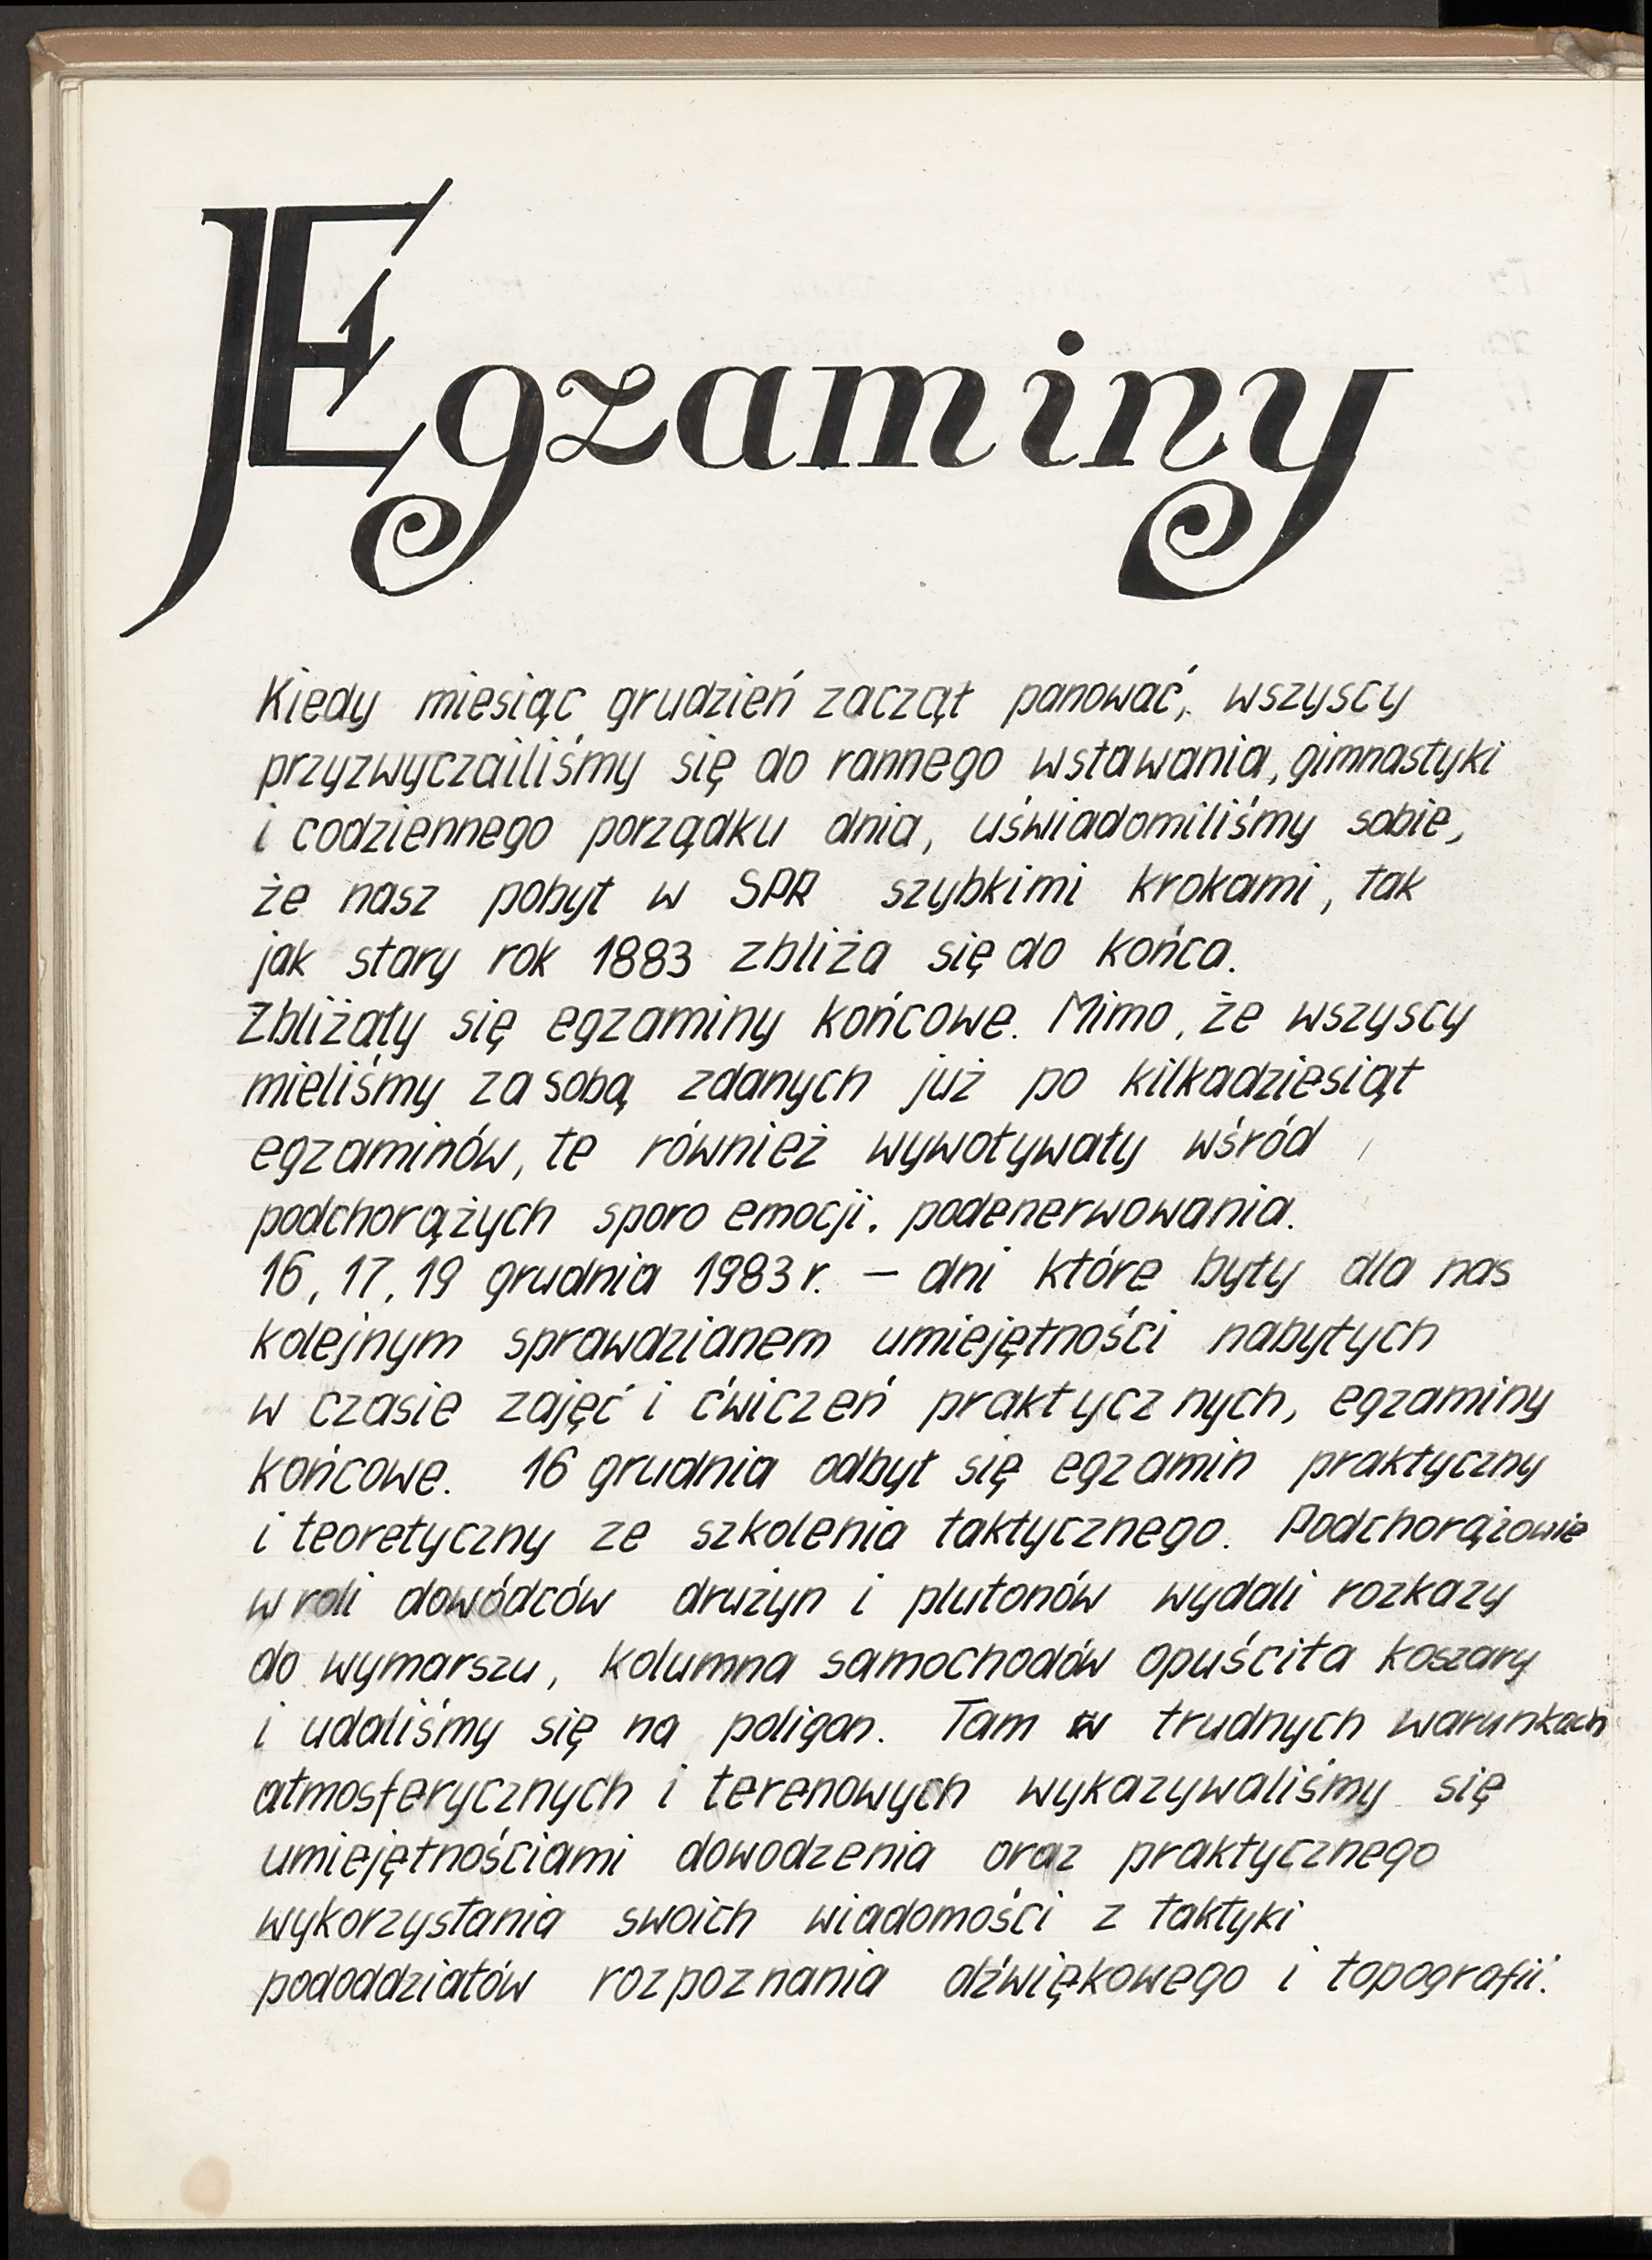 Egzaminy
Kiedy miesiąc grudzień zaczął panować, wszyscy
przyzwyczailiśmy się do rannego wstawania, gimnastyki
i codziennego porządku dnia, uświadomiliśmy sobie,
że nasz pobyt w SPR szybkimi krokami, tak
jak stary rok 1883 zbliża się do końca.
Zbliżały się egzaminy końcowe. Mimo, że wszyscy
mieliśmy za sobą zdanych już po kilkadziesiąt
egzaminów, te również wywoływały wśród
podchorążych sporo emocji. podenerwowania.
16, 17, 19 grudnia 1983 r. – dni które były dla nas
kolejnym sprawdzianem umiejętności nabytych
w czasie zajęć i ćwiczeń praktycznych, egzaminy
końcowe. 16 grudnia odbył się egzamin praktyczny
i teoretyczny ze szkolenia taktycznego. Podchorążowie
w roli dowódców drużyn i plutonów wydali rozkazy
do wymarszu, kolumna samochodów opuściła koszary
i udaliśmy się na poligon. Tam w trudnych warunkach
atmosferycznych i terenowych wykazywaliśmy się
umiejętnościami dowodzenia oraz praktycznego
wykorzystania swoich wiadomości z taktyki
pododdziałów rozpoznania dźwiękowego i topografii.